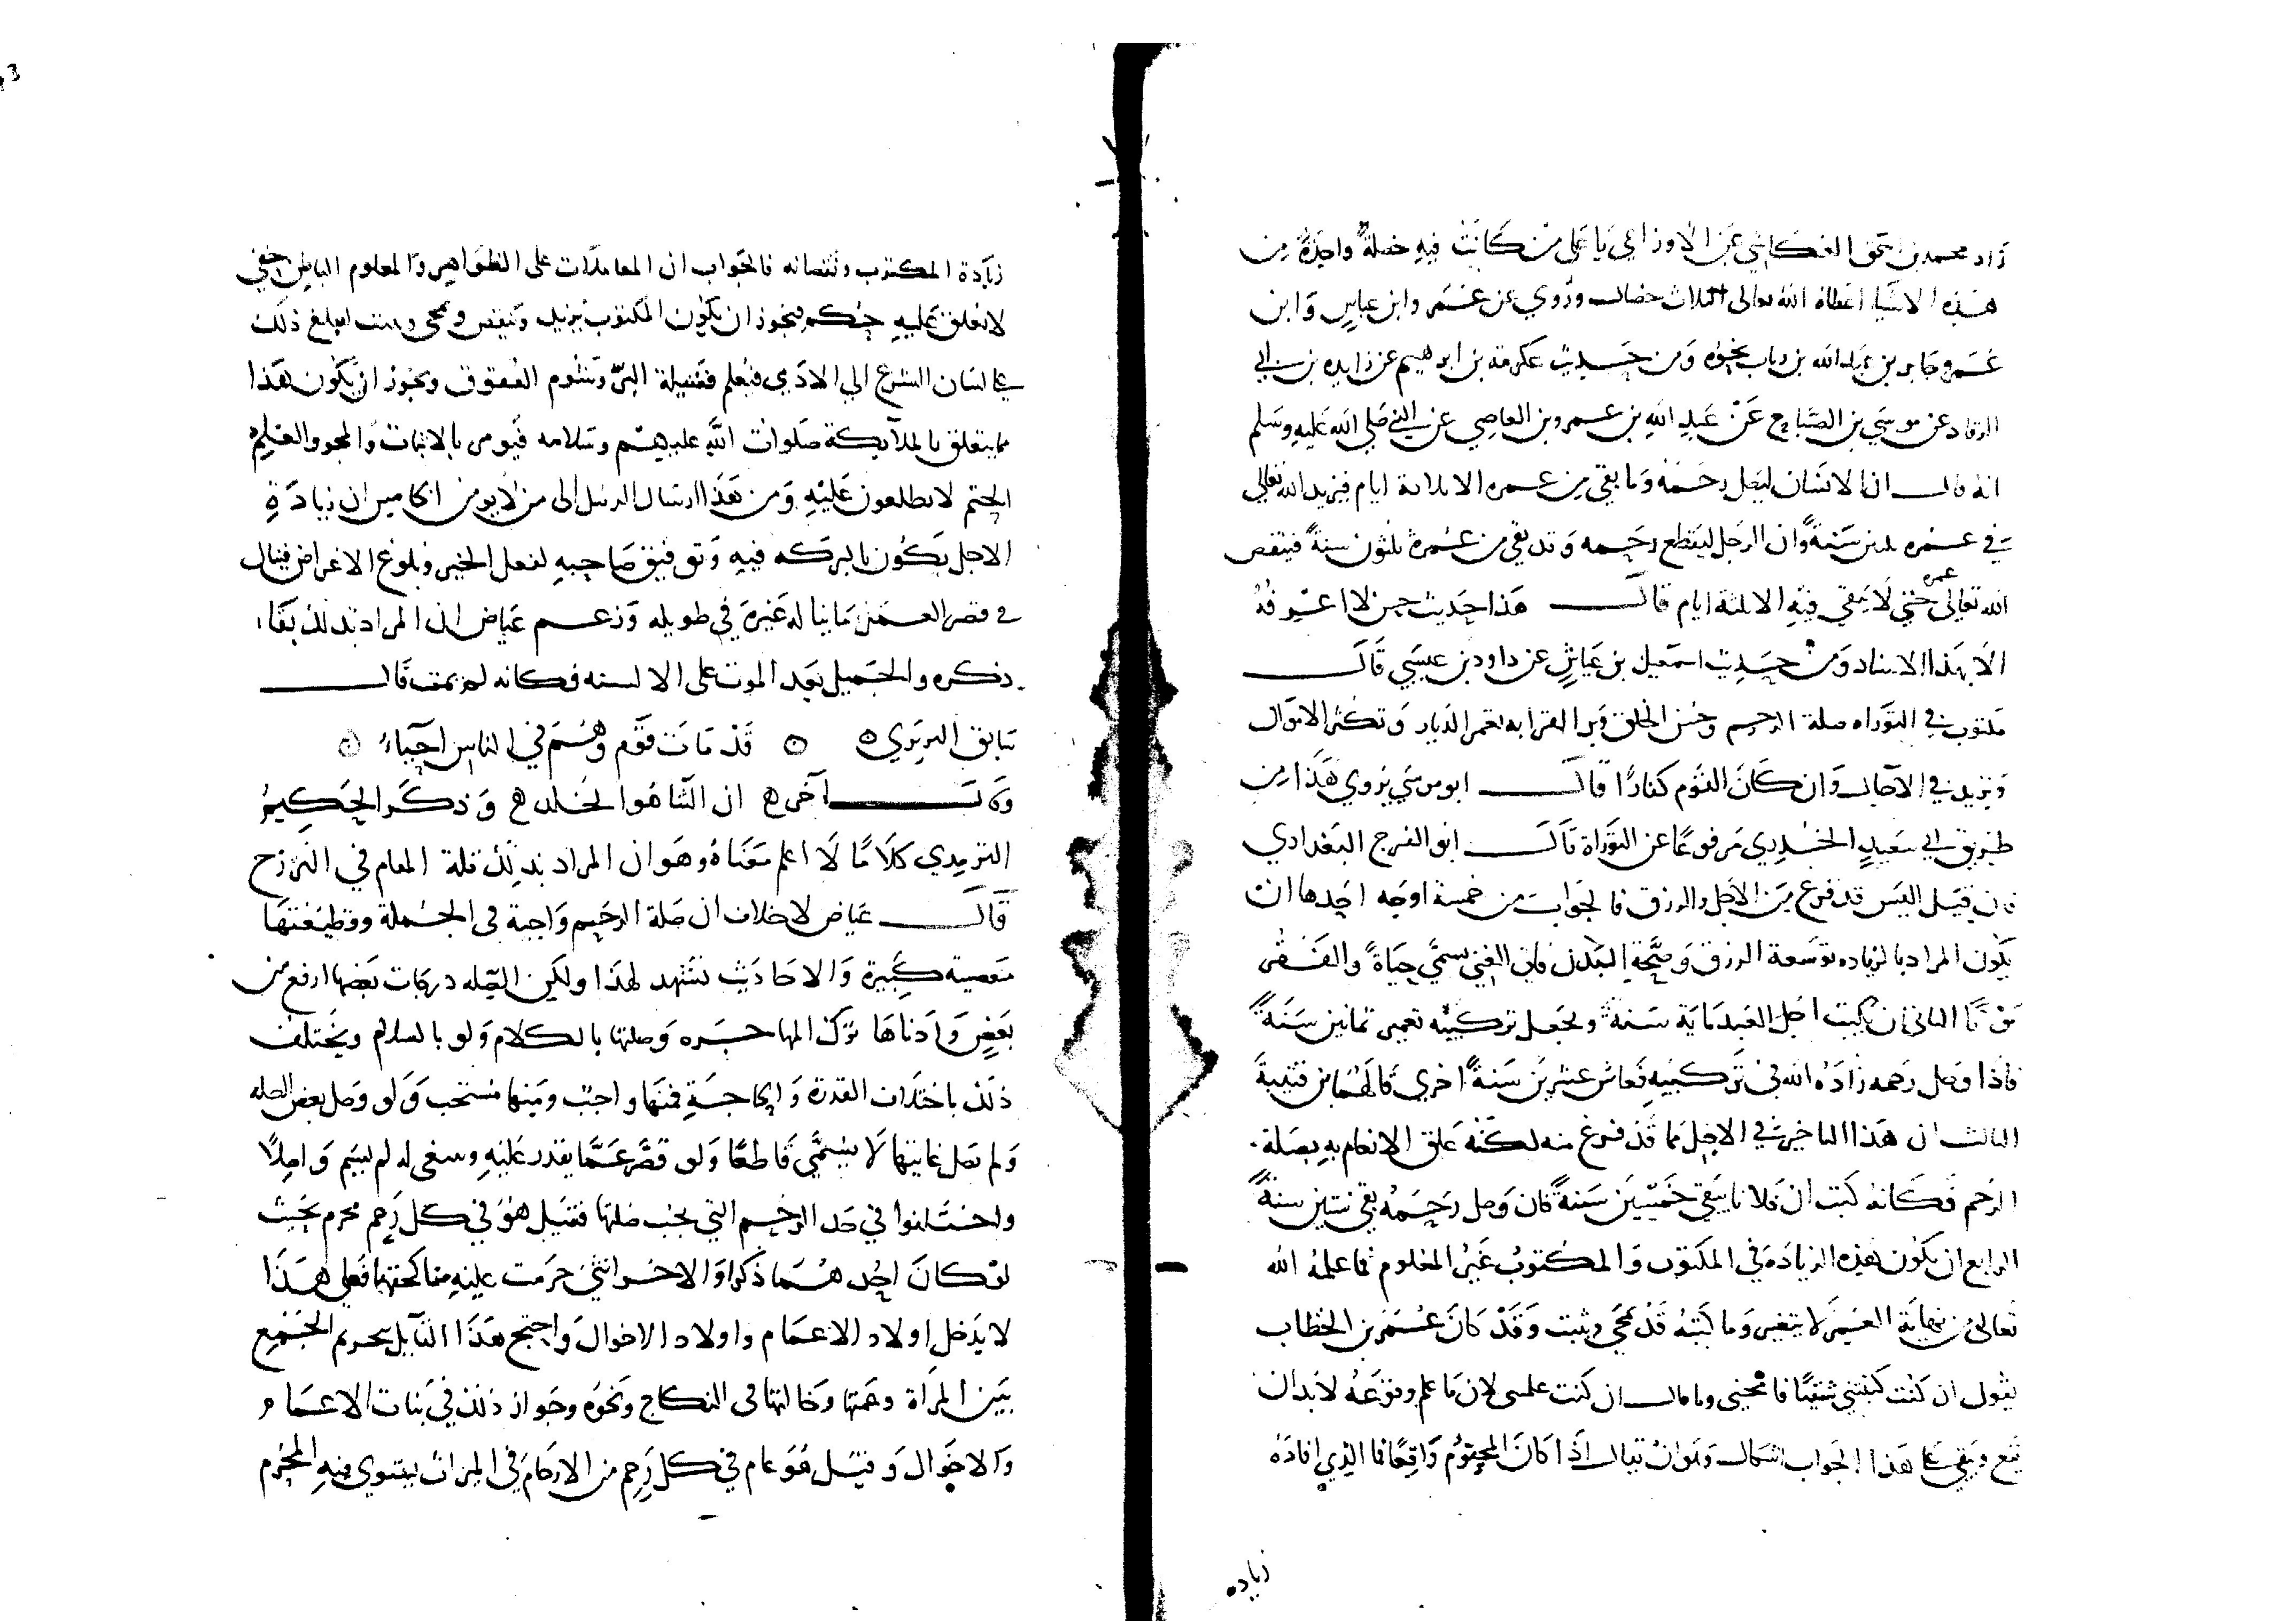 زاد محمد بن اسحق العكاشي عن الاوزاعي يا علي من كانت فيه خصلة واحدة من
هذه الاشيا اعطاه الله تعالى الثلاث خصال وروي عن عمر وابن عباس وابن
عمر وجابر بن عبد الله بن رياب نحوه ومن حديث عكرمة بن ابرهيم عن زايده بن ابي
الرقاد عن موسي بن الصباح عن عبد الله بن عمرو بن العاصي عن النبي صلي الله عليه وسلم
انه قال ان الانسان ليصل رحمه وما بقي من عمره الا ثلاثة ايام فيزيد الله تعالي
في عمره ثلثين سنة وان الرجل ليقطع رحمه وقد بقي من عمره ثلثون سنة فينقص
الله تعالى عمره حتي لا يبقي فيه الا ثلثة ايام قال هذا حديث حسن لا اعرفه
الا بهذا الاسناد ومن حديث اسمعيل بن عياش عن داود بن عيسي قال
مكتوب في التوراه صلة الرحم وحسن الخلق وبر القرابه تعمر الديار وتكثر الاموال
وتزيد في الاجال وان كان القوم كفارا قال ابو موسي يروي هذا من
طريق ابي سعيد الخدري مرفوعا عن التوراة قال ابو الفرج البغدادي
فان قيل اليس قد فرغ من الاجل والرزق فالجواب من خمسة اوجه احدها ان
يكون المراد بالزياده توسعة الرزق وصحة البدن فان الغني يسمي حياة والفقر
موتا الثاني ان يكتب اجل العبد ماية سنة ويجعل تركيبه تعمير ثمانين سنة
فاذا وصل رحمه زاده الله في تركيبه فعاش عشرين سنة اخري قالهما ابن قتيبة
الثالث ان هذا التاخير في الاجل مما قد فرغ منه لكنه علق الانعام به بصلة
الرحم فكانه كتب ان فلانا يبقي خمسين سنة فان وصل رحمه بقي ستين سنة
الرابع ان تكون هذه الزيادة في المكتوب والمكتوب غير المعلوم فما علمه الله
تعالى من نهاية العمر لا يتغير وما كتبه قد يمحي ويثبت وقد كان عمر بن الخطاب
يقول ان كنت كتبتني شقيا فامحني وما قال ان كنت علمتني لان ما علم وقوعه لا بد ان
يقع ويبقي علي هذا الجواب اشكال وهو ان يقال اذا كان المحتوم واقعا فما الذي افاده
زياده
زيادة المكتوب ونقصانه فالجواب ان المعاملات على الظواهر والمعلوم الباطن خفي
لا يعلق عليه حكم فيجوز ان يكون المكتوب يزيد وينقص ويمحى ويثبت ليبلغ ذلك
علي لسان الشرع الي الادمي فيعلم فضيلة البر وشوم العقوق ويجوز ان يكون هذا
مما يتعلق بالملايكة صلوات الله عليهم وسلامه فيومر بالاثبات والمحو والعلم
الحتم لا يطلعون عليه ومن هذا ارسال الرسل الى من لا يومن الخامس ان زيادة
الاجل يكون بالبركه فيه وتوفيق صاحبه لفعل الخير وبلوغ الاغراض فينال
في قصر العمر ما يناله غيره في طويله وزعم عياض ان المراد بذلك بقاء
ذكره والجميل بعد الموت على الالسنه فكانه لم يمت قال
سابق البربري قد مات قوم وهم في الناس احياء
وقال آخر ان الثنا هو الخلد وذكر الحكيم
الترمذي كلاما لا اعلم معناه وهو ان المراد بذلك قلة المقام في البرزخ
قال عياض لا خلاف ان صلة الرحم واجبة في الجملة وقطيعتها
معصية كبيرة والاحاديث تشهد لهذا ولكن الصله درجات بعضها ارفع من
بعض وادناها ترك المهاجره وصلتها بالكلام ولو بالسلام ويختلف
ذلك باختلاف القدرة والحاجة فمنها واجب ومنها مستحب ولو وصل بعض الصله
ولم يصل غايتها لا يسمي قاطعا ولو قصر عما يقدر عليه وينبغي له لم يسم واصلا
واختلفوا في حد الرحم التي يجب صلتها فقيل هو في كل رحم محرم بحيث
لو كان احدهما ذكرا والاخر انثى حرمت عليه مناكحتها فعلي هذا
لا يدخل اولاد الاعمام واولاد الاخوال واحتج هذا القايل بتحريم الجمع
بين المراة وعمتها وخالتها في النكاح ونحوه وجواز ذلك في بنات الاعمام
والاخوال وقيل هو عام في كل رحم من الارحام في الميراث يستوي فيه المحرم